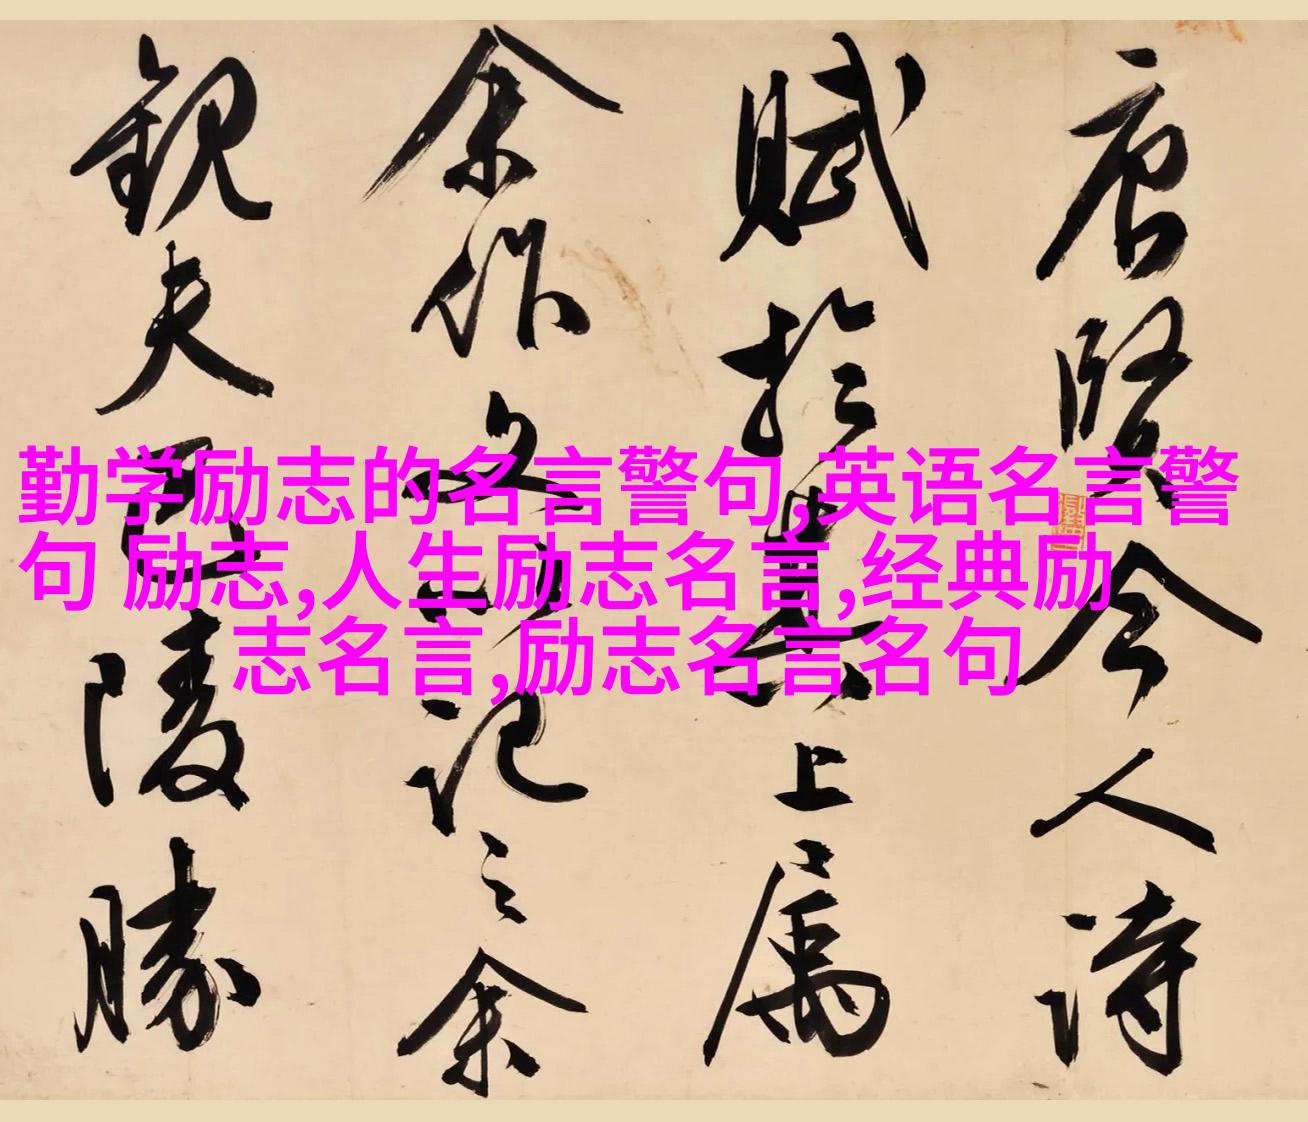 唐賢今人詩
賦於其上屬
余作文以記之余
觀夫巴陵勝
勤学励志的名言警句,英语名言警
句 励志,人生励志名言,经典励
志名言,励志名言名句